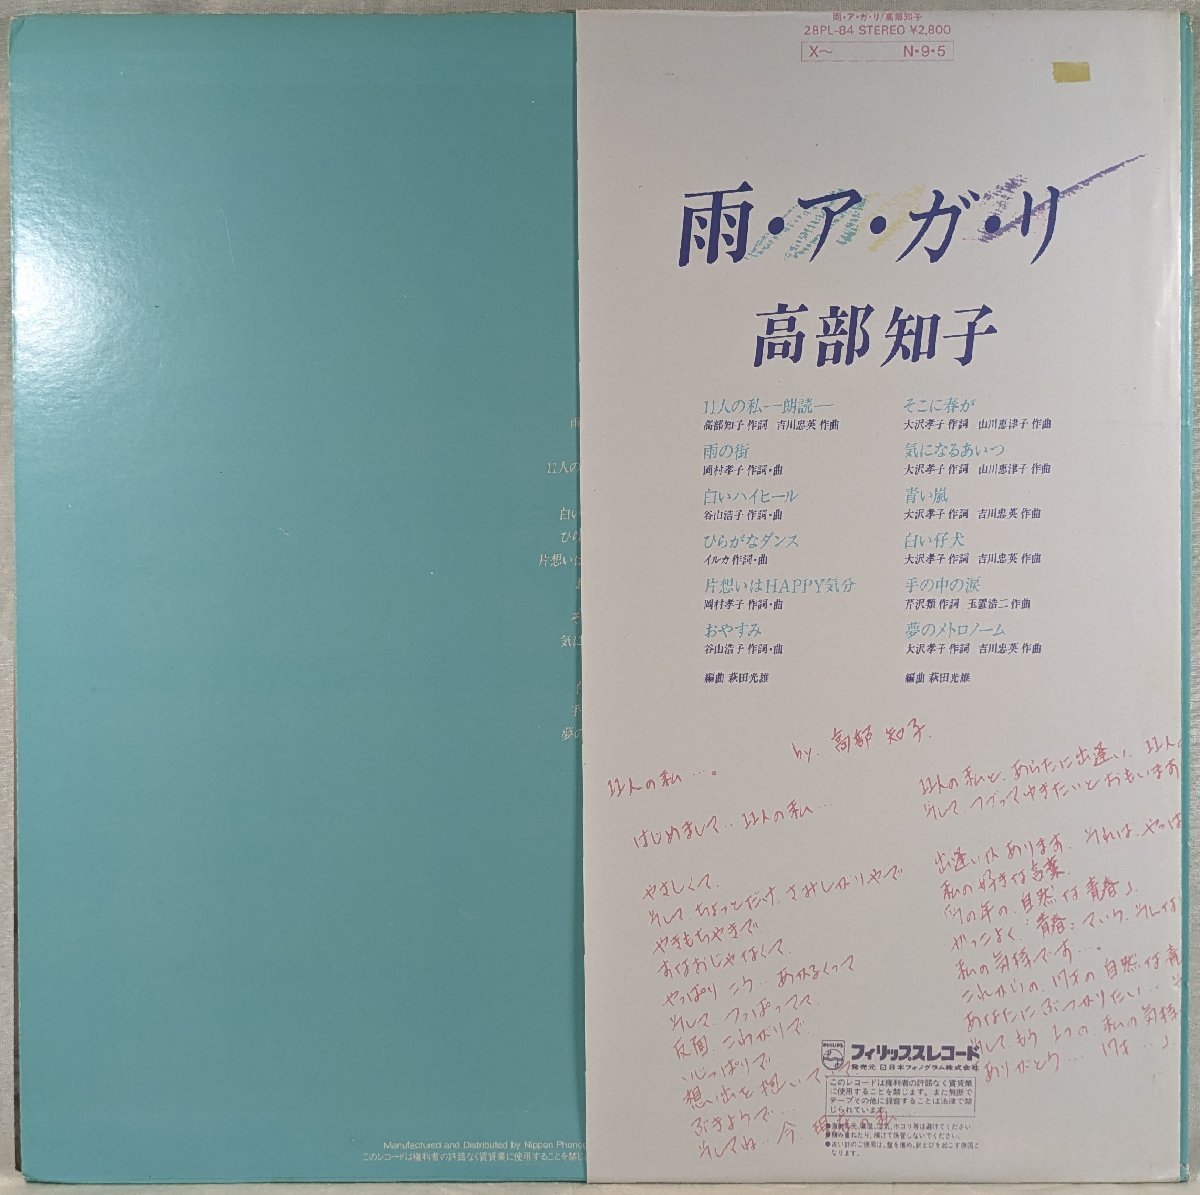 雨・ア・ガ・リ/高部知子
28PL-84 STEREO ¥2,800
X〜 N・9・5
雨・ア・ガ・リ
高部知子
11人の私―朗読―
高部知子 作詞 吉川忠英 作曲
雨の街
岡村孝子 作詞・曲
白いハイヒール
谷山浩子 作詞・曲
ひらがなダンス
イルカ 作詞・曲
片想いはHAPPY気分
岡村孝子 作詞・曲
おやすみ
谷山浩子 作詞・曲
編曲 萩田光雄
そこに春が
大沢孝子 作詞 山川恵津子 作曲
気になるあいつ
大沢孝子 作詞 山川恵津子 作曲
青い嵐
大沢孝子 作詞 吉川忠英 作曲
白い仔犬
大沢孝子 作詞 吉川忠英 作曲
手の中の涙
芹沢類 作詞 玉置浩二 作曲
夢のメトロノーム
大沢孝子 作詞 吉川忠英 作曲
編曲 萩田光雄
雨
11人の
白い
ひら
片想いは
そ
気に
手
夢の
by. 高部 知子.
11人の私…。
はじめまして… 11人の私…
やさしくて、
そして、ちょっとだけ、さみしがりやで
やきもちやきで、
すなおじゃなくて、
やっぱり、こう… あかるくって
そして、つっぱってて
反面、こわがりで、
いじっぱりで
想い出を想いて
ぶきようで…
そしてね… 今、現在の私
11人の私と、あらたに出逢い、11人
そして、つづってゆきたいとおもいます
出逢いがあります。それは、やっぱ
私の好きな言葉
「17の年の、自然な青春」
かっこよく「青春」ていうか、そんな
私の気持です…。
これからの、17才の自然な青
あなたにぶつかりたい…
そして、もう1つの、私の気持
ありがとう… 17才…」
PHILIPS
フィリップスレコード
発売元 日本フォノグラム株式会社
このレコードは権利者の許諾なく賃貸業
に使用することを禁じます。また無断で
テープその他に録音することは法律で禁
じられています。
●直射日光、高温、湿気、ホコリ等は避けてください。
●積み重ねたり、傾けて保管しないでください。
●古い針のご使用は、盤を傷め、針とびを起こす原因と
なります。
Manufactured and Distributed by Nippon Phonog
このレコードは権利者の許諾なく賃貸業に使用することを禁じ